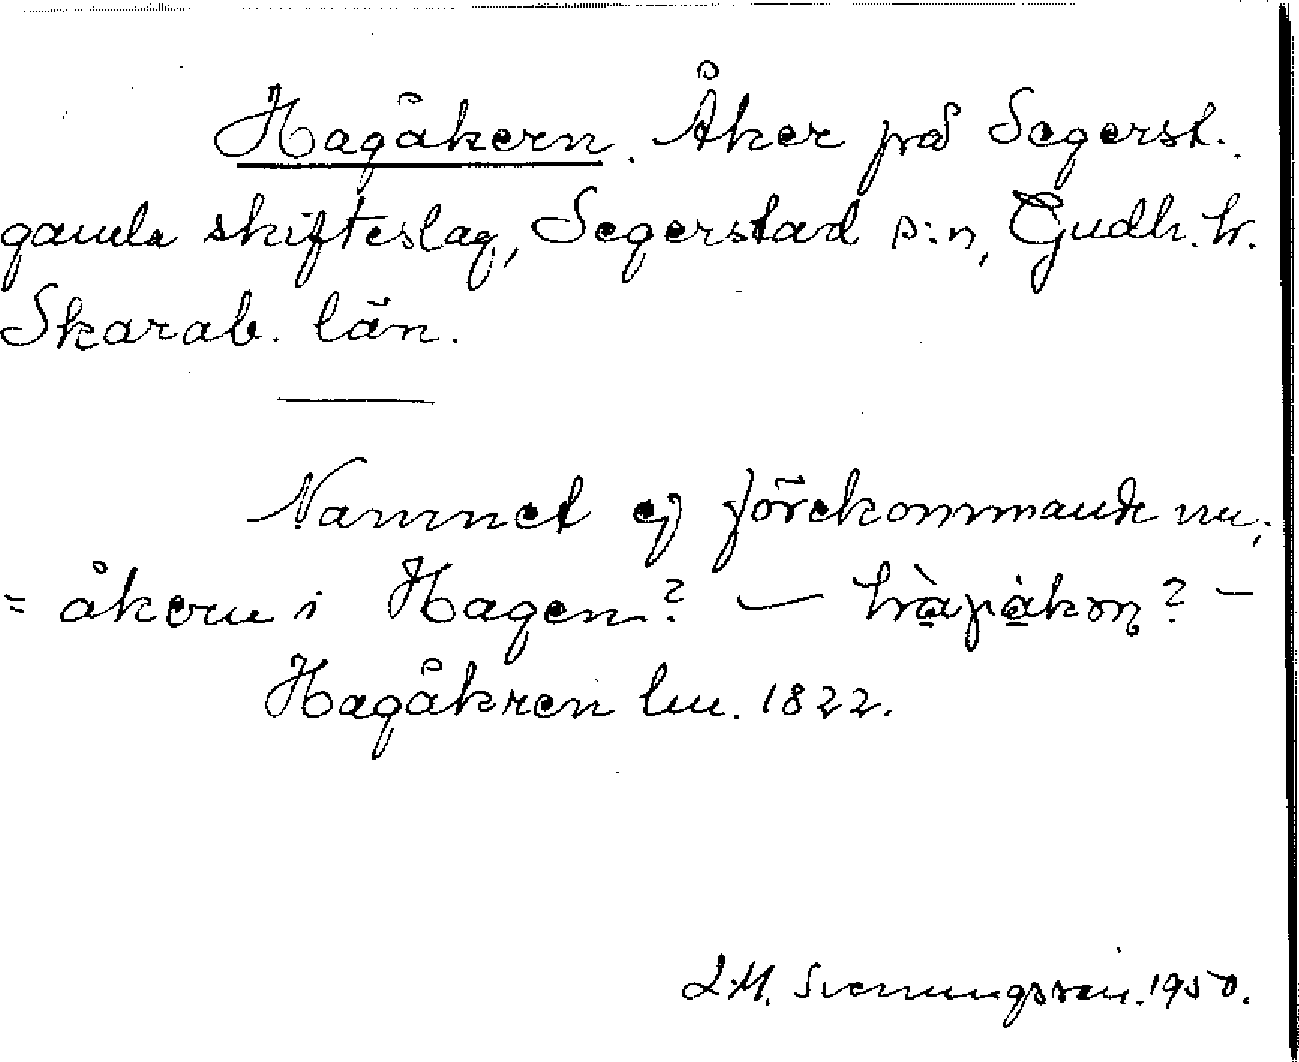 Hagåkern. Åker på Segerst.
gamla skifteslag, Segerstad s:n, Gudh. hr.
Skarab. län.
Namnet ej förekommande nu;
= åkern i Hagen? — ? —
Hagåkren lm. 1822.
L.M. Svenungsson. 1950.